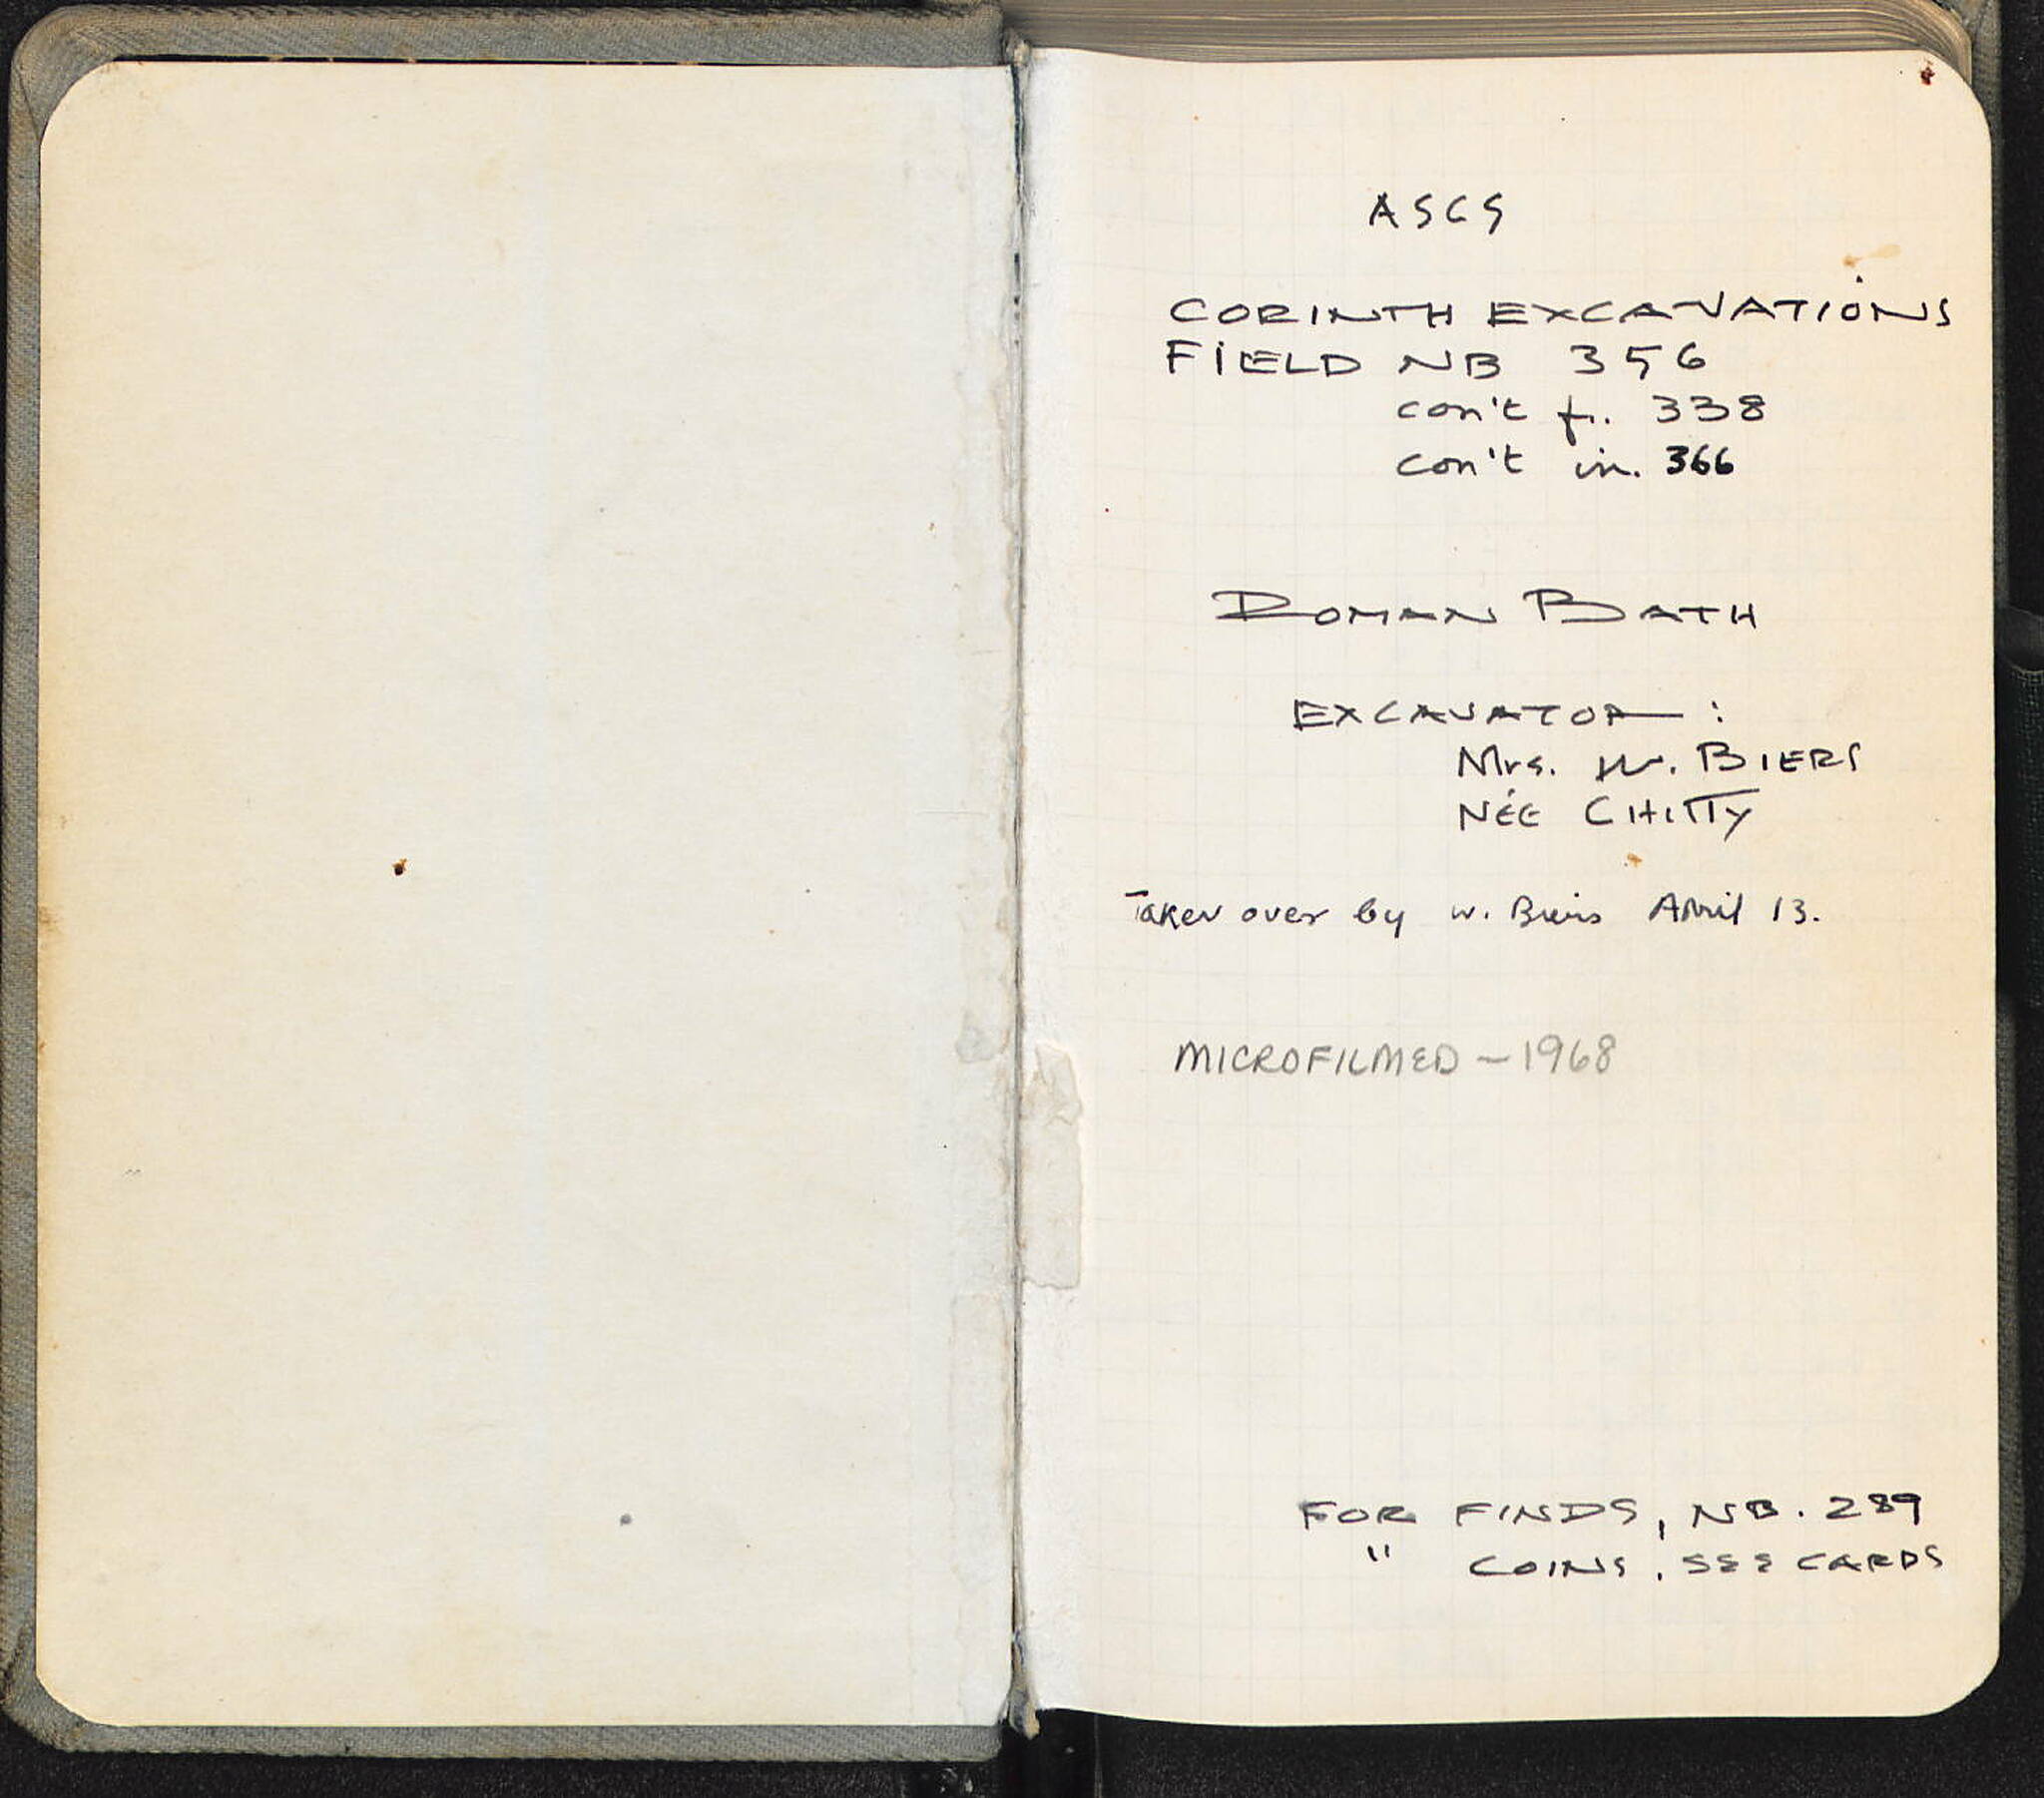 ASCS
CORINTH EXCAVATIONS
FIELD NB 356
con't fr. 338
con't in. 366
ROMAN BATH
EXCAVATOR :
Mrs. W. BIERS
NÉE CHITTY
Taken over by W. Biers April 13.
MICROFILMED - 1968
FOR FINDS, NB. 289
" COINS, SEE CARDS